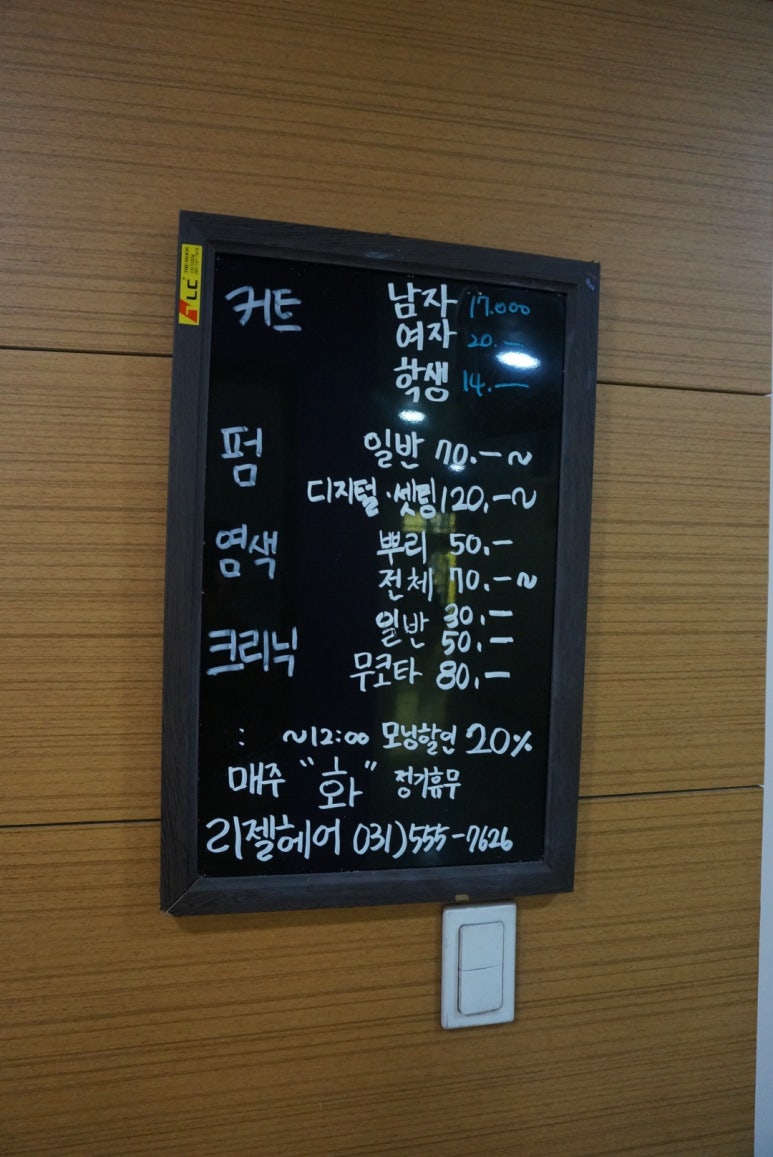 커트 남자 17.000
여자 20.—
학생 14.—
펌 일반 70.—~
디지털·셋팅 120.—~
염색 뿌리 50.—
전체 70.—~
크리닉 일반 30.—
50.—
무코타 80.—
: ~12:00 모닝할인 20%
매주 "화" 정기휴무
리젤헤어 031)555-7626
LC